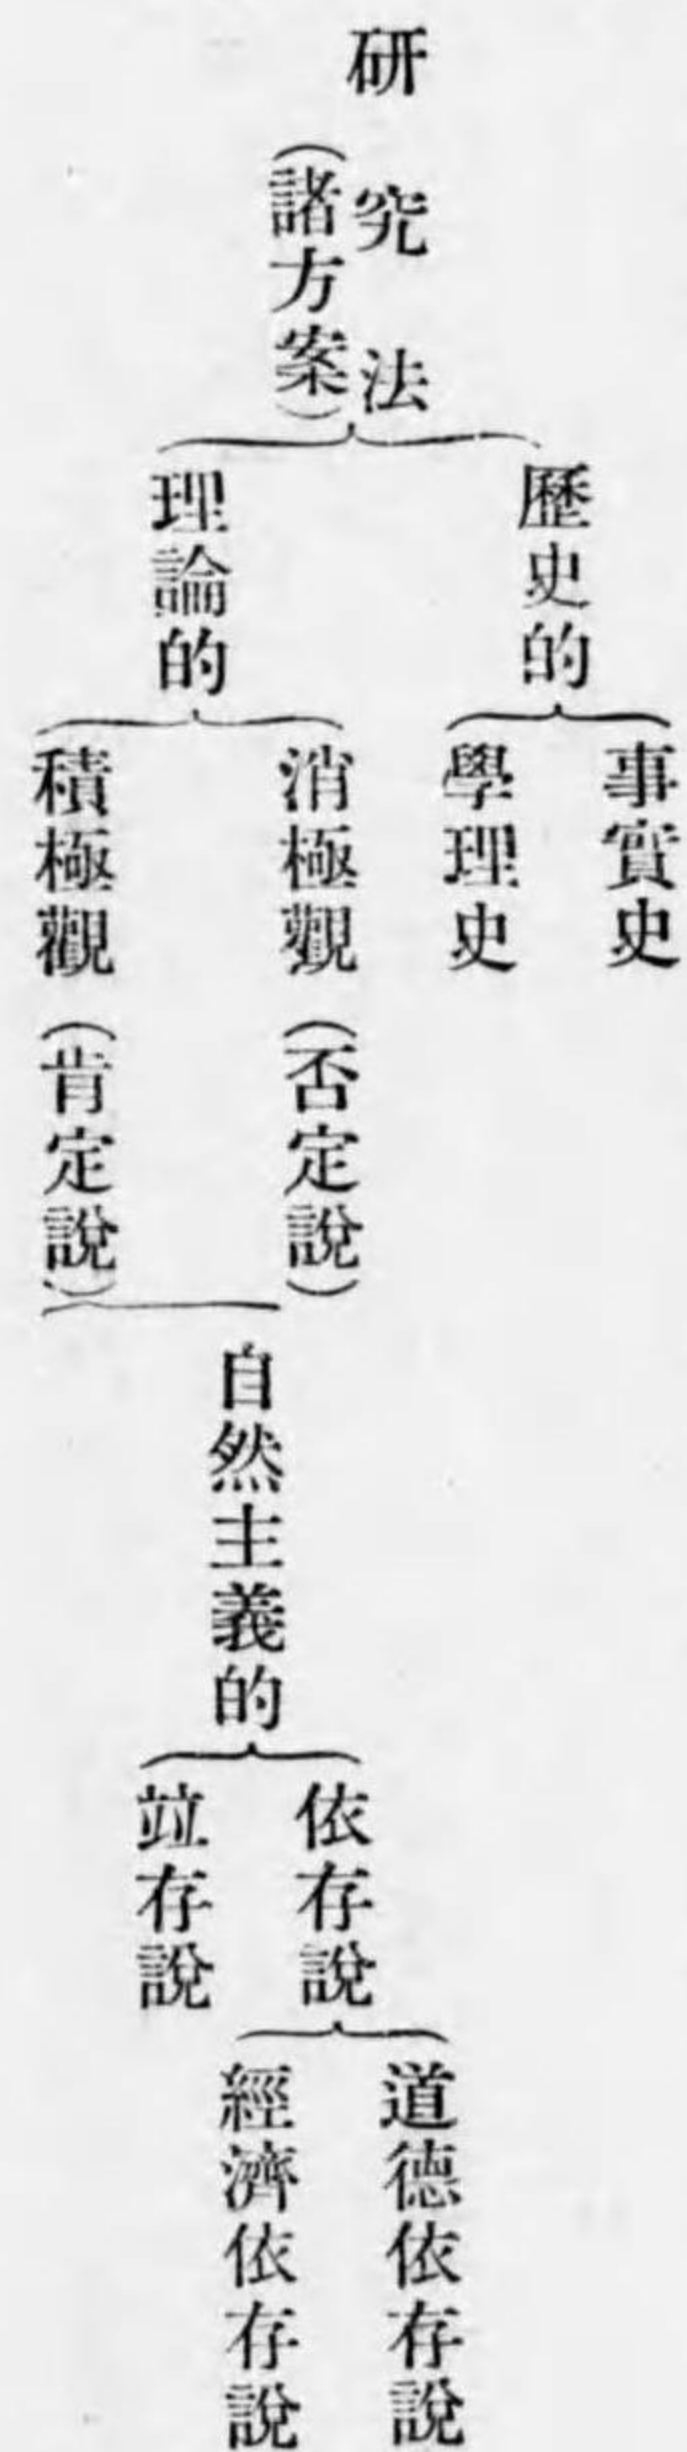 研究法
(諸方案)
歷史的
事實史
學理史
理論的
消極觀(否定說)
積極觀(肯定說)
自然主義的
依存說
道德依存說
經濟依存說
竝存說